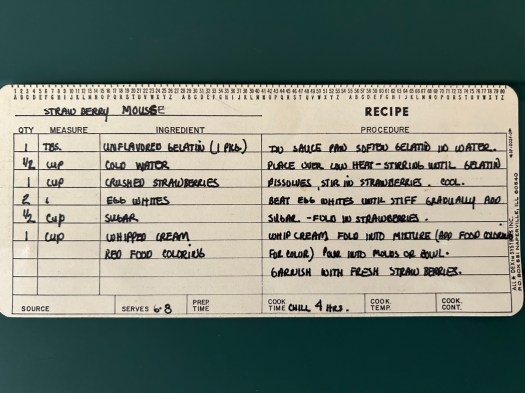 STRAW BERRY MOUSSE
RECIPE
QTY MEASURE INGREDIENT PROCEDURE
1 TBS. UNFLAVORED GELATIN (1 PKG.) IN SAUCE PAN SOFTEN GELATIN IN WATER.
1/2 CUP COLD WATER PLACE OVER LOW HEAT - STIRRING UNTIL GELATIN
1 CUP CRUSHED STRAWBERRIES DISSOLVES, STIR IN STRAWBERRIES. COOL.
2 EGG WHITES BEAT EGG WHITES UNTIL STIFF GRADUALLY ADD
1/2 CUP SUGAR SUGAR - FOLD IN STRAWBERRIES.
1 CUP WHIPPED CREAM WHIP CREAM FOLD INTO MIXTURE (ADD FOOD COLORING
RED FOOD COLORING FOR COLOR) POUR INTO MOLDS OR BOWL.
GARNISH WITH FRESH STRAW BERRIES.
SOURCE SERVES 6-8 PREP TIME COOK TIME CHILL 4 HRS. COOK. TEMP. COOK. CONT.